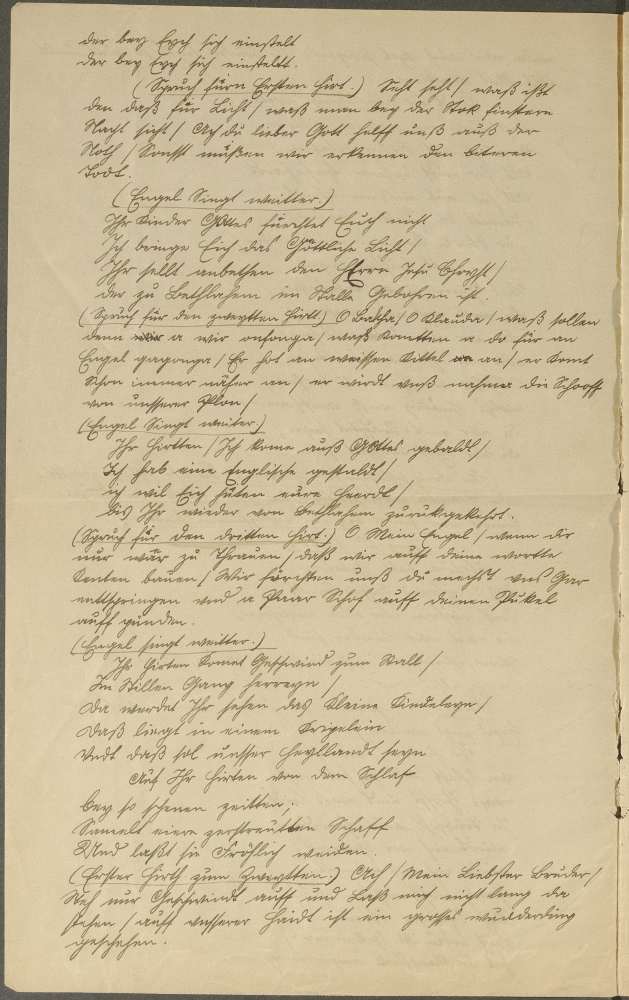 der bey Eych sich einstelt
der bey Eych sich einsteltt.
(Spruch fürn Ersten Hirt.) Seht seht / waß ißt
den daß für Licht / waß man bey der Stok finstern
Nacht sicht / Ach du lieber Gott helff unß auß der
Noth / Sonsst müßen wir erkennen den biteren
Todt.
(Engel Singt weitter.)
Ihr Kinder Gottes fürchtet Euch nicht
Ich bringe Eich das Göttliche Licht /
Ihr sellt anbethen den Herrn Jesu Chryst /
der zu Bethlahem im Stalle Gebohren ist.
(Spruch für den zweytten Hirtt) O / O Klauda / waß sollen
denn a wir onfonga / waß kontten a do für an
Engel gegonga / Er hot an weissen Kittel an / er kimt
Schon immer näher an / er wirdt unß nehmen die Schooff
von unsserer Plon /
(Engel Singt weiter)
Ihr Hirtten / Ich kome auß Gottes gebaldt /
Ich hab eine Englische gestaldt /
ich wil Eich hüten eure Heerdt /
bis Ihr wieder von Bethlahem zurükgekehrt.
(Spruch für den dritten Hirt.) O Mein Engel / wenn dir
nur wär zu Thrauen / daß wir auff deine wortte
kenten bauen / Wir förchten unß du mechst uns Gar
entspringen und a Paar Schof auff deinen Pukel
auff günden.
(Engel singt weitter.)
Ihr Hirten komet Geschwind zum Stall /
Im Stillen Gang herreyn /
Da werdet Ihr sehen das kleine Kindeleyn /
Daß liegt in einem Kripelein
Undt daß sol unsser Heyllandt seyn
Auf Ihr Hirten von dem Schlaf
bey so schenen zeitten;
Samelt eiere zerstreutten Schaff
Und laßt sie Fröhlich weiden.
(Erster Hirth zum Zweytten.) Ach / Mein Liebster Bruder /
Steh nur Geschwindt auff und Laß mich nicht lang da
stehen / auff unsserer Haidt ist ein grosses wunderding
geschehen.